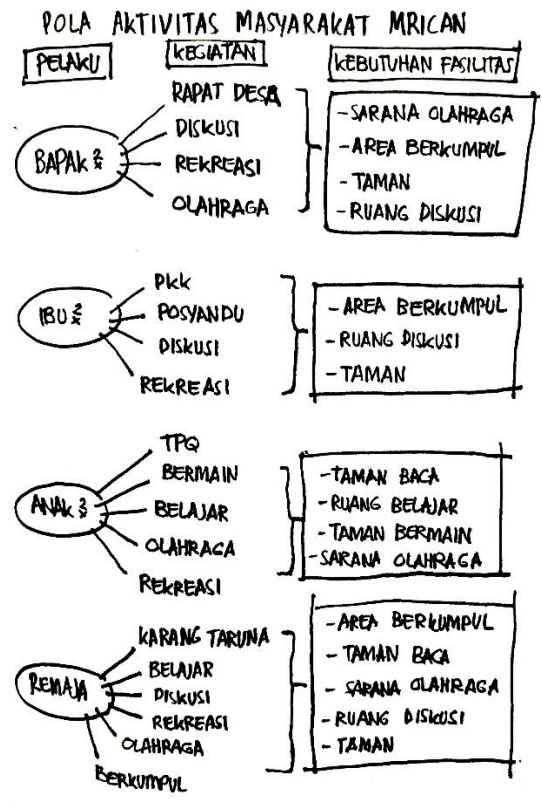 POLA AKTIVITAS MASYARAKAT MRICAN
PELAKU
KEGIATAN
KEBUTUHAN FASILITAS
BAPAK 2x
RAPAT DESA
DISKUSI
REKREASI
OLAHRAGA
- SARANA OLAHRAGA
- AREA BERKUMPUL
- TAMAN
- RUANG DISKUSI
IBU 2x
PKK
POSYANDU
DISKUSI
REKREASI
- AREA BERKUMPUL
- RUANG DISKUSI
- TAMAN
ANAK 2x
TPQ
BERMAIN
BELAJAR
OLAHRAGA
REKREASI
- TAMAN BACA
- RUANG BELAJAR
- TAMAN BERMAIN
- SARANA OLAHRAGA
REMAJA
KARANG TARUNA
BELAJAR
DISKUSI
REKREASI
OLAHRAGA
BERKUMPUL
- AREA BERKUMPUL
- TAMAN BACA
- SARANA OLAHRAGA
- RUANG DISKUSI
- TAMAN